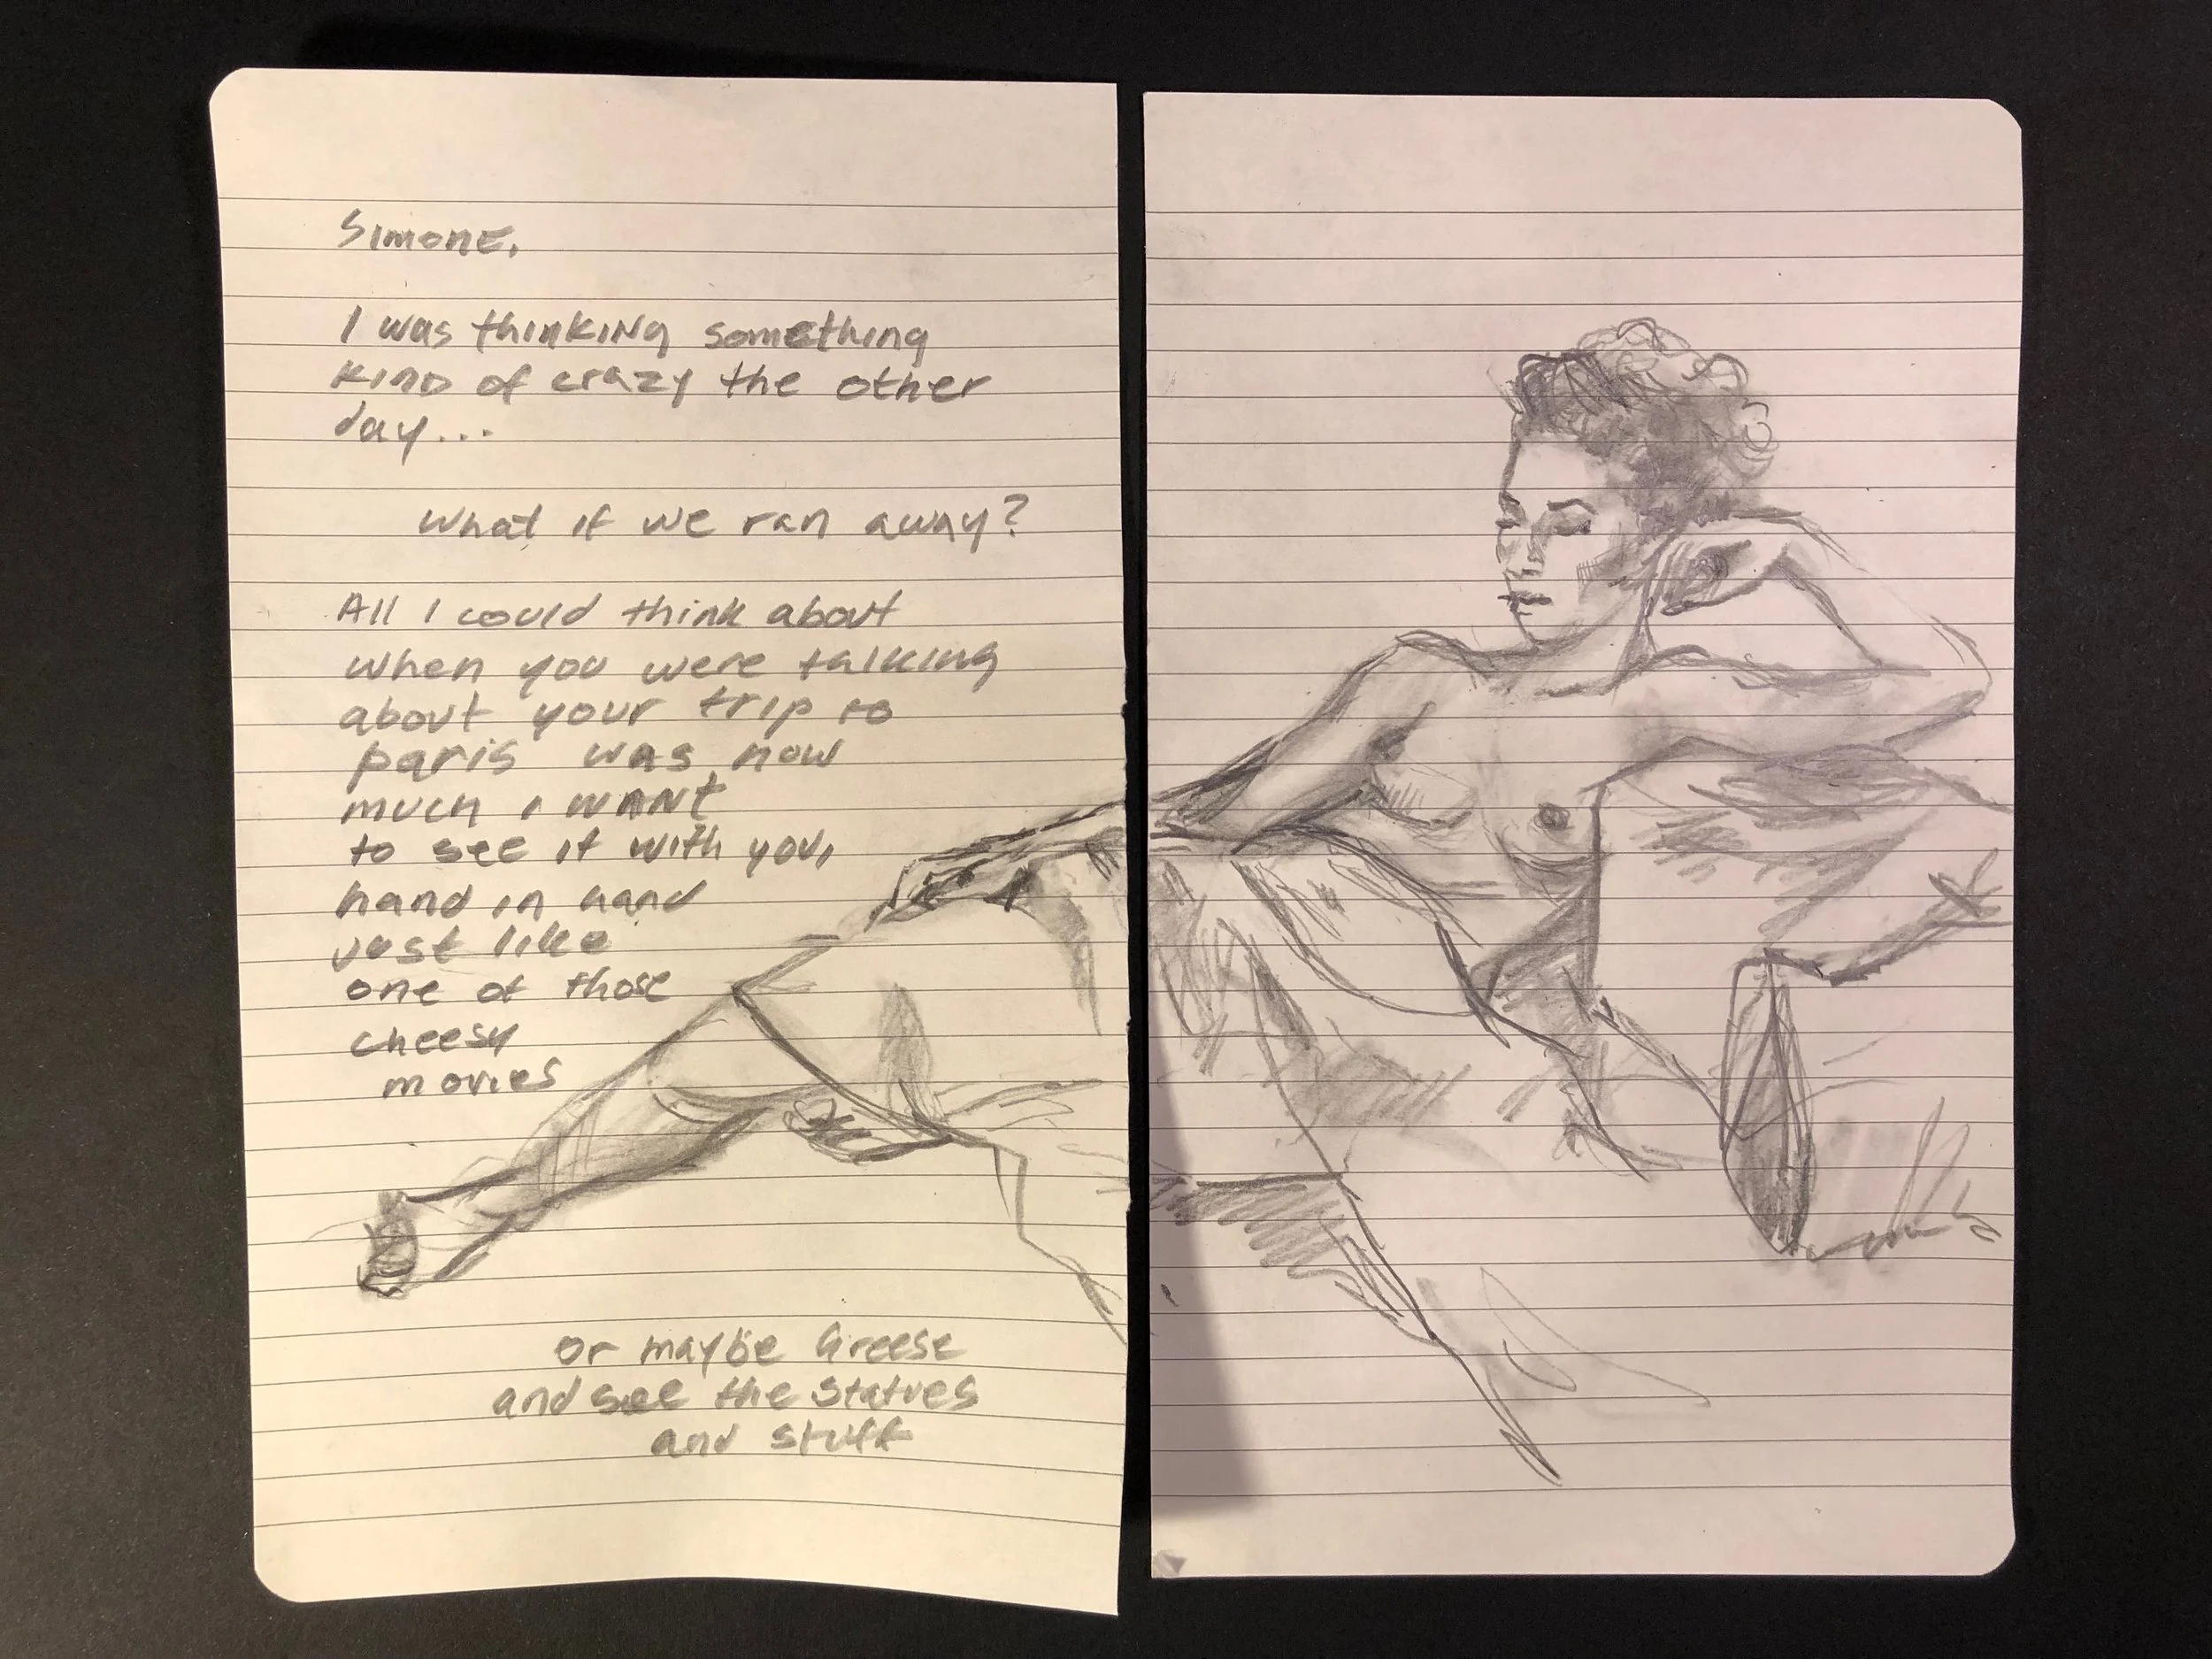 Simone,
I was thinking something
kind of crazy the other
day...
What if we ran away?
All I could think about
when you were talking
about your trip to
paris was how
much i want
to see it with you,
hand in hand
just like
one of those
cheesy
movies
Or maybe Greese
and see the statues
and stuff